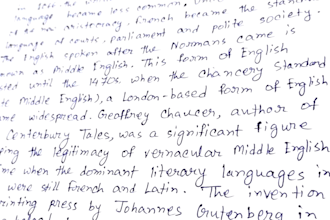 language became less common,
aristocracy, French became the stan
language of courts, parliament and polite society.
The English spoken after the Normans came is
known as Middle English. This form of English
until the 1470s, when the chancery standard
te Middle English), a London-based form of English
me widespread. Geaffrey chaucer, author of
Centerbury Tales, was a significant figure
ing the legitimacy of vernacular Middle English
me when the dominant literary languages in
were still French and Latin. The invention
rinting press by Johannes Grutenberg in